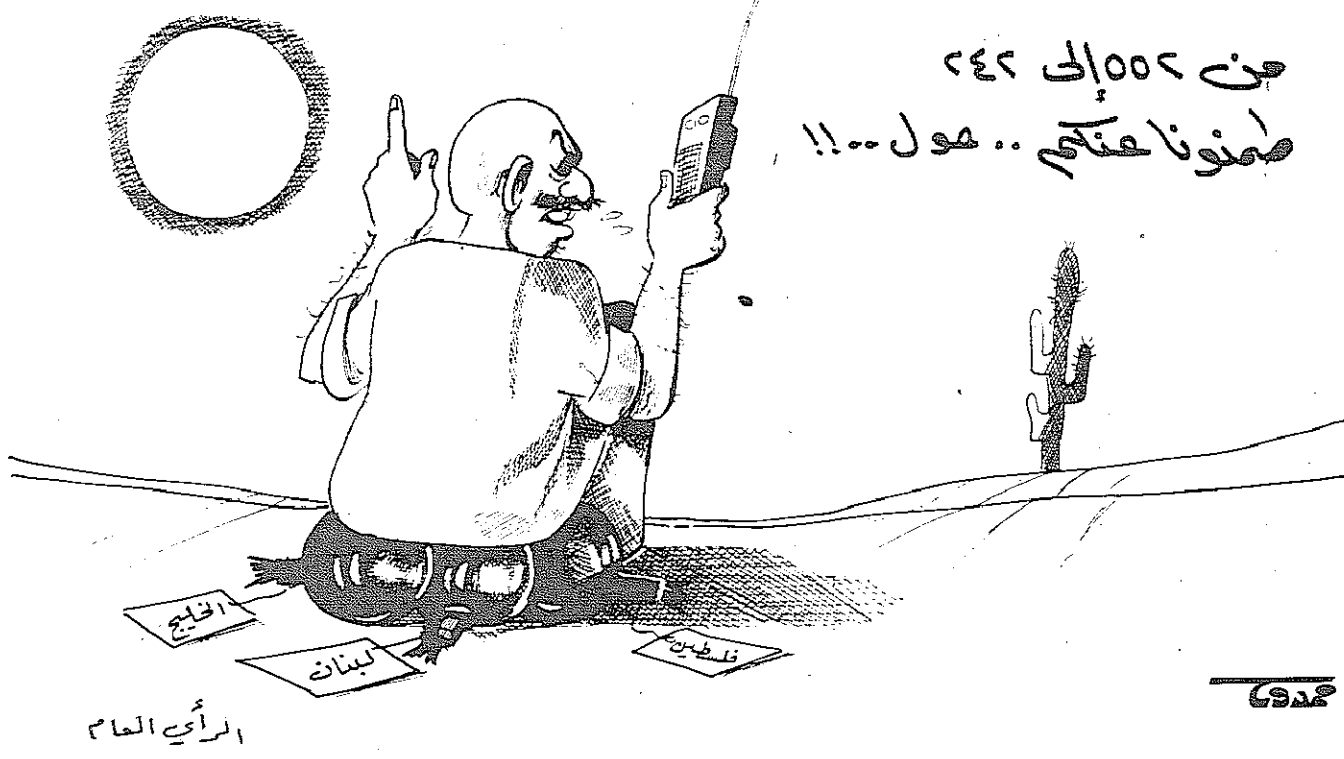 من ٥٥٢ إلى ٢٤٢
طمنونا عنكم .. حول ..!!
الخليج
لبنان
فلسطين
الرأي العام